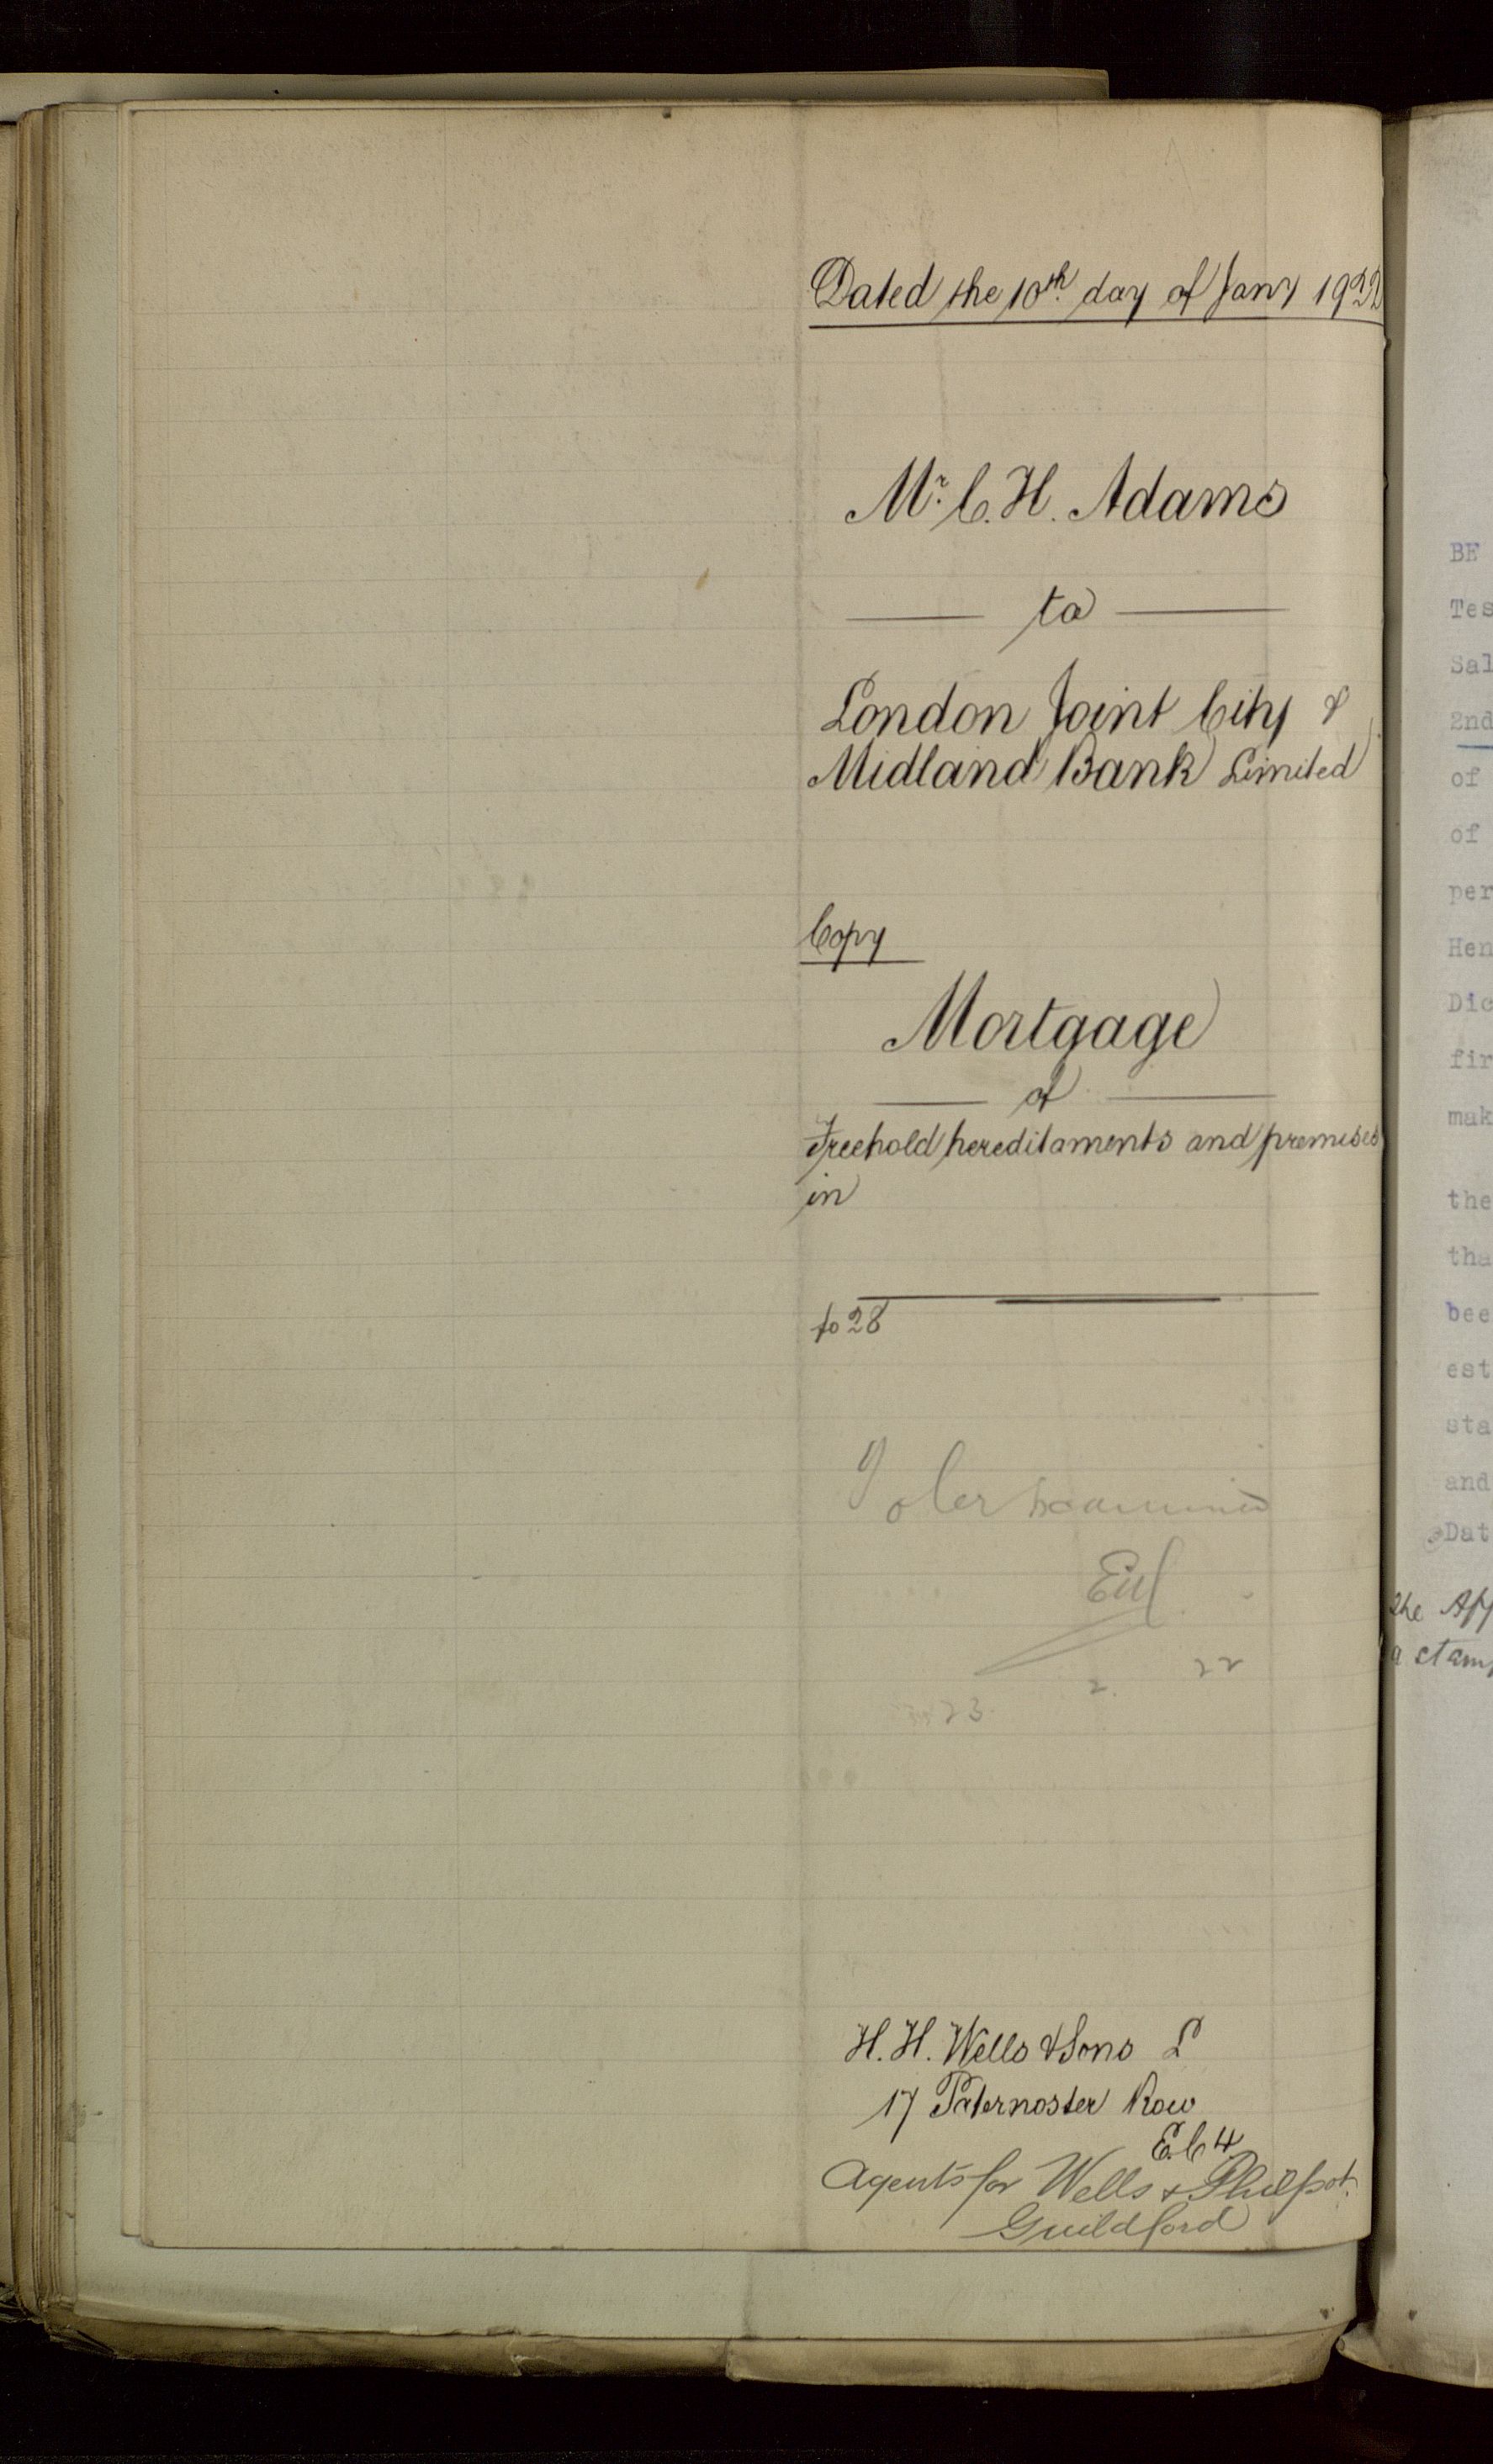 Dated the 10th day of Jany 1922
Mr. C. H. Adams
to
London Joint City &
Midland Bank Limited
Copy
Mortgage
of
Freehold hereditaments and premises
in
fo 28
2 22
23
H. H. Wells & Sons
17 Paternoster Row
E.C 4
Agents for Wells & Philpot.
Guildford
BE
Tes
Sal
2nd
of
of
per
Hen
Dic
fir
mak
the
tha
bee
est
sta
and
Dat
the Aff
a stam